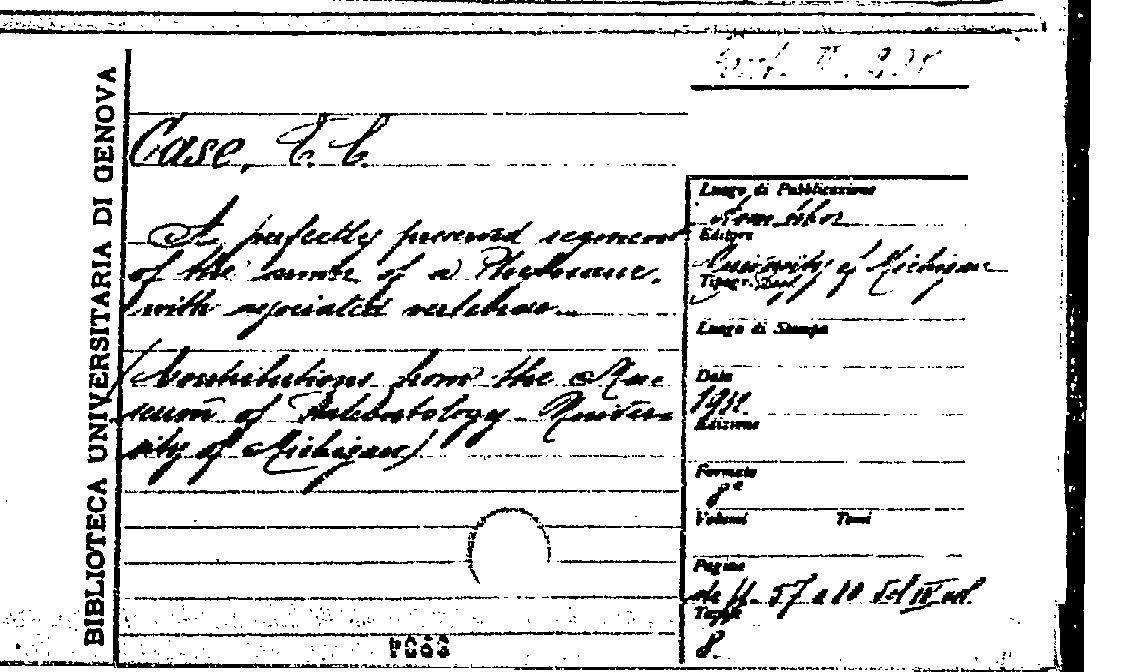 BIBLIOTECA UNIVERSITARIA DI GENOVA
Case, E. C.
A perfectly preserved segment
of the of a
with associated vertebrae.
(Contributions from the Mu-
seum of Paleontology. Univer-
sity of Michigan)
Luogo di Pubblicazione
Editore
University of Michigan
Tipogr.
Luogo di Stampa
Data
Edizione
Formato
8°
Volumi Tomi
Pagine
da p. 57 a 80 del IV vol.
Tavole
8.